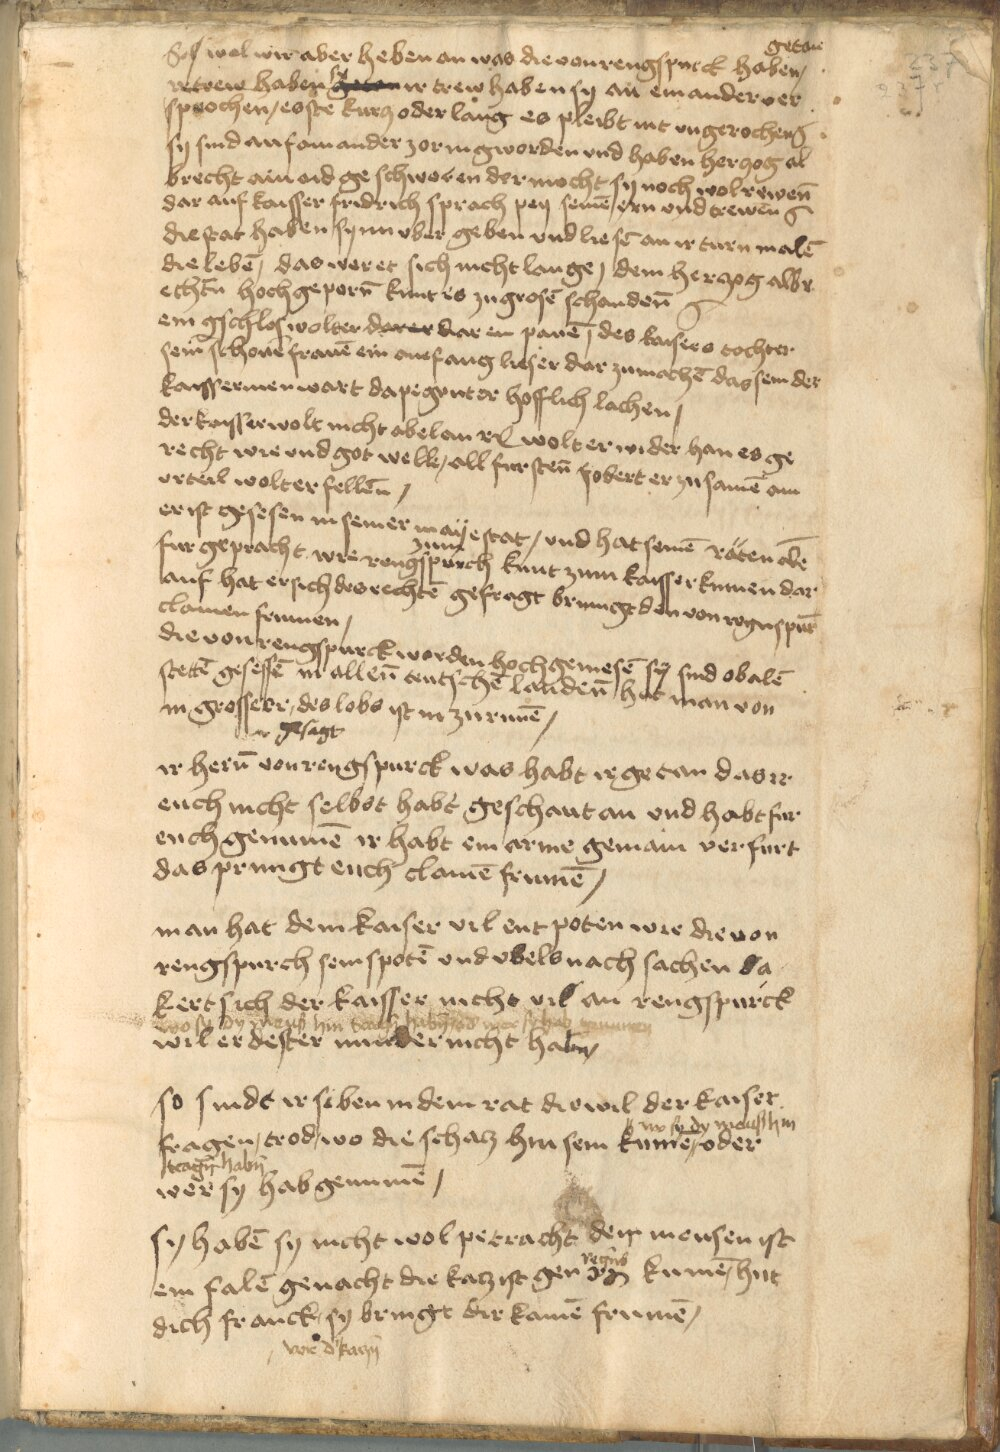 getan
Sol wol wir aber heben an was die von rengspurck haben /
ir trew haben sy getan ir trew haben sy an ein ander ver
sprochen / es ste kurcz oder lang es pleibt nit ungerochen
sy sind auf ain ander zornig worden und haben herczog al
brecht ain aid geschworen der mocht sy noch wol rewen̄
dar auf kaisser fridrich sprach pey seinē ern und trewen̄
die stat haben sy im uber geben und liesē an ir turn malē
die lebē / das weret sich nicht lange / dem herczog albr
echtn̄ hochgeporn̄ kunt es zu grosē schanden̄
ein gschlos wolt er darer dar ein pauē / des kaisers tochter
sein schonē frauē ein anefang lies er dar zu machē das sein der
kaisser innen wart da pegunt er hofflich lachen /
der kaisser wolt nicht abelan rc wolt er wider han es ge
recht wie und got welle / all fursten̄ vobert er zu samē ain
urteil wolt er fellen̄ /
er ist gesesen in seiner mayestat / und hat seinē rätten obē
fur gepracht wie rengspurch kunt zum kaisser kumen dar
zum
auf hat er sich des rechtē gefragt bringt den von regnspurc
clainen frumen /
die von rengspurck worden hoch gewesē sy sind ob alē
stettē gesessē in allen̄ teutschē landen̄ / hat man von
in grosser / des lobs ist in zu rinē /
er gesagt
ir hern̄ von rengspurck was habt ir getan das ir
euch nicht selbst habt geschaut an und habt fur
euch genumē ir habt ein arme gemain verfurt
das pringt euch clainē frumē /
man hat dem kaiser vil entpoten wie die von
rengspurch sein spotē und ubels nach sachen da
kert sich der kaisser nicht vil an rengspurck
wo sy dy meus hin tragn̄ habn̄ od wer sy hab genumen
wil er dester minder nicht habn /
so sindt ir siben in dem rat die wil der kaiser
fragen / trod / wo die schatz hin sein kumē / oder
wo sy dy meus hin
tragn̄ habn̄
wer sy hab genumē /
sy habē sy nicht wol petracht den meusen ist
ein falē gemacht die katz ist gen regns kumē / hut
dich franck / sy bringt dir kainē frumē /
vor d' katzn̄